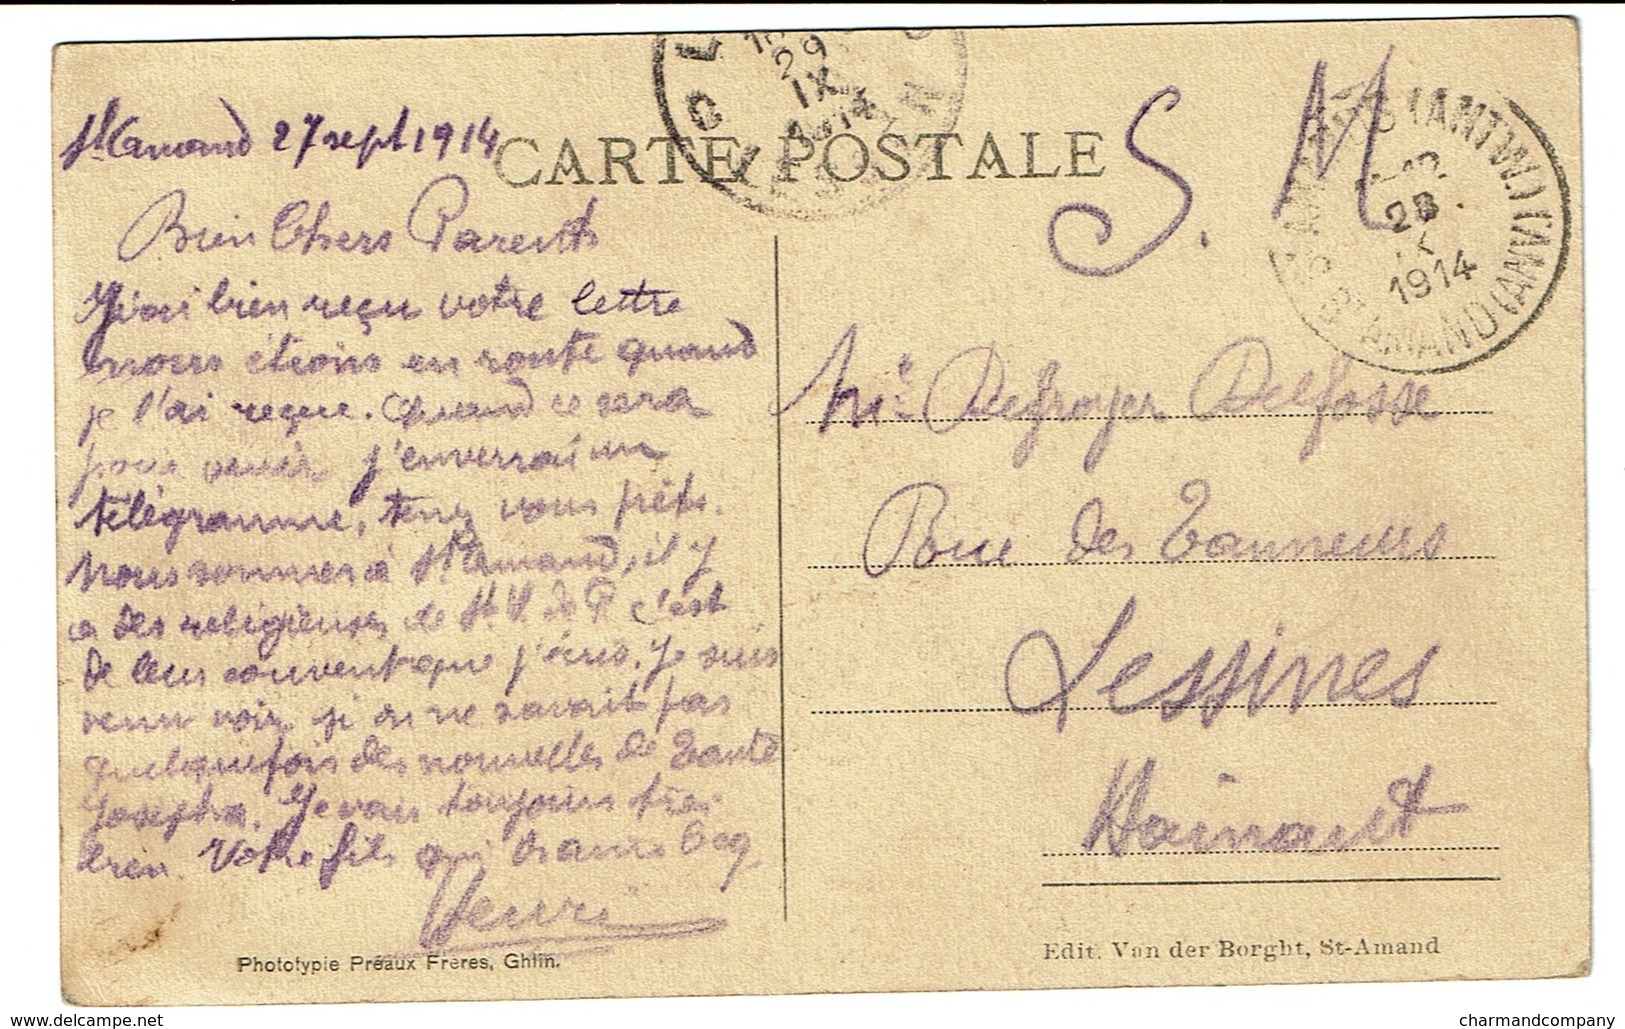 St Amand 27 sept 1914
CARTE POSTALE
S. M.
29
IX
(ANTW.) (ANV.)
28
1914
ST AMAND
Bien Chers Parents
J'ai bien reçu votre lettre
nous étions en route quand
je l'ai reçue. Quand ce sera
pour venir j'enverrai un
télégramme, tenez vous prêts.
Nous sommes à St Amand, il y
a des religieuses de St. V. de P. c'est
de leur couvent que j'écris. Je suis
venu voir si on ne savait pas
quelquefois des nouvelles de Tante
Josepha. Je vais toujours très
bien. Votre fils qui aime
Henri
Defroyer Delfosse
Rue des Tanneurs
Lessines
Hainaut
Phototypie Préaux Frères, Ghlin.
Edit. Van der Borght, St-Amand
www.delcampe.net
charmandcompany